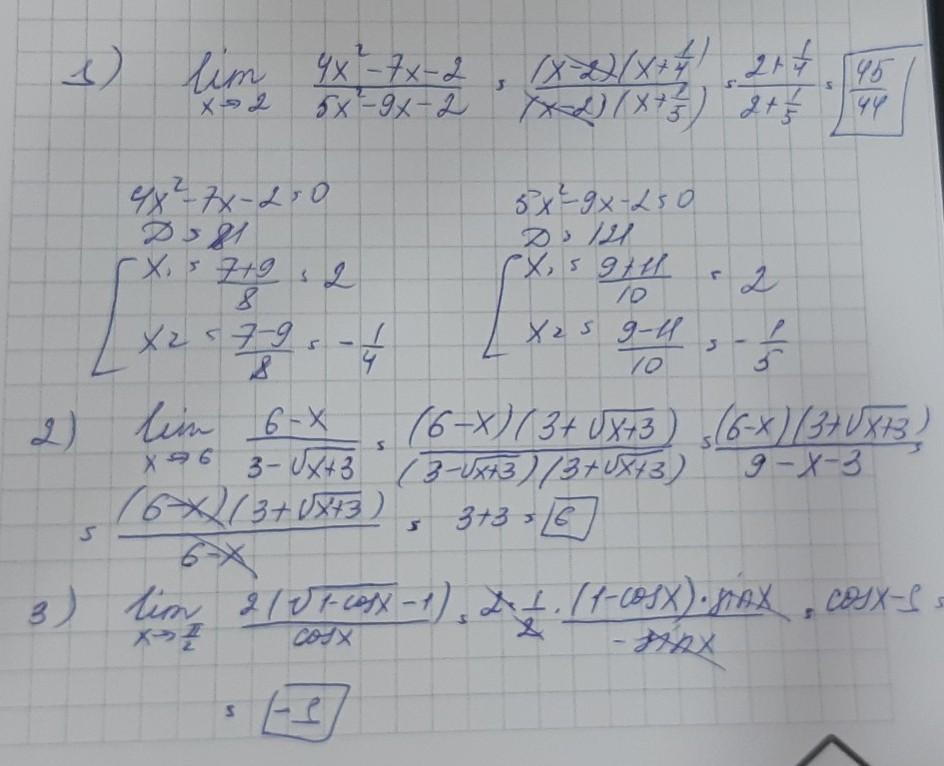 1) lim x→2 (4x²-7x-2)/(5x²-9x-2) = ((x-2)(x+1/4))/((x-2)(x+1/5)) = (2+1/4)/(2+1/5) = 45/44
4x²-7x-2=0 5x²-9x-2=0
D=81 D=121
x₁ = (7+9)/8 = 2 x₁ = (9+11)/10 = 2
x2 = (7-9)/8 = -1/4 x2 = (9-11)/10 = -1/5
2) lim x→6 (6-x)/(3-√(x+3)) = ((6-x)(3+√(x+3)))/((3-√(x+3))(3+√(x+3))) = ((6-x)(3+√(x+3)))/(9-x-3) =
= ((6-x)(3+√(x+3)))/(6-x) = 3+3 = 6
3) lim x→π/2 (2(√(1-cosx)-1))/cosx = 2·1/2·((1-cosx)·sinx)/(-sinx) = cosx-1 =
= -1